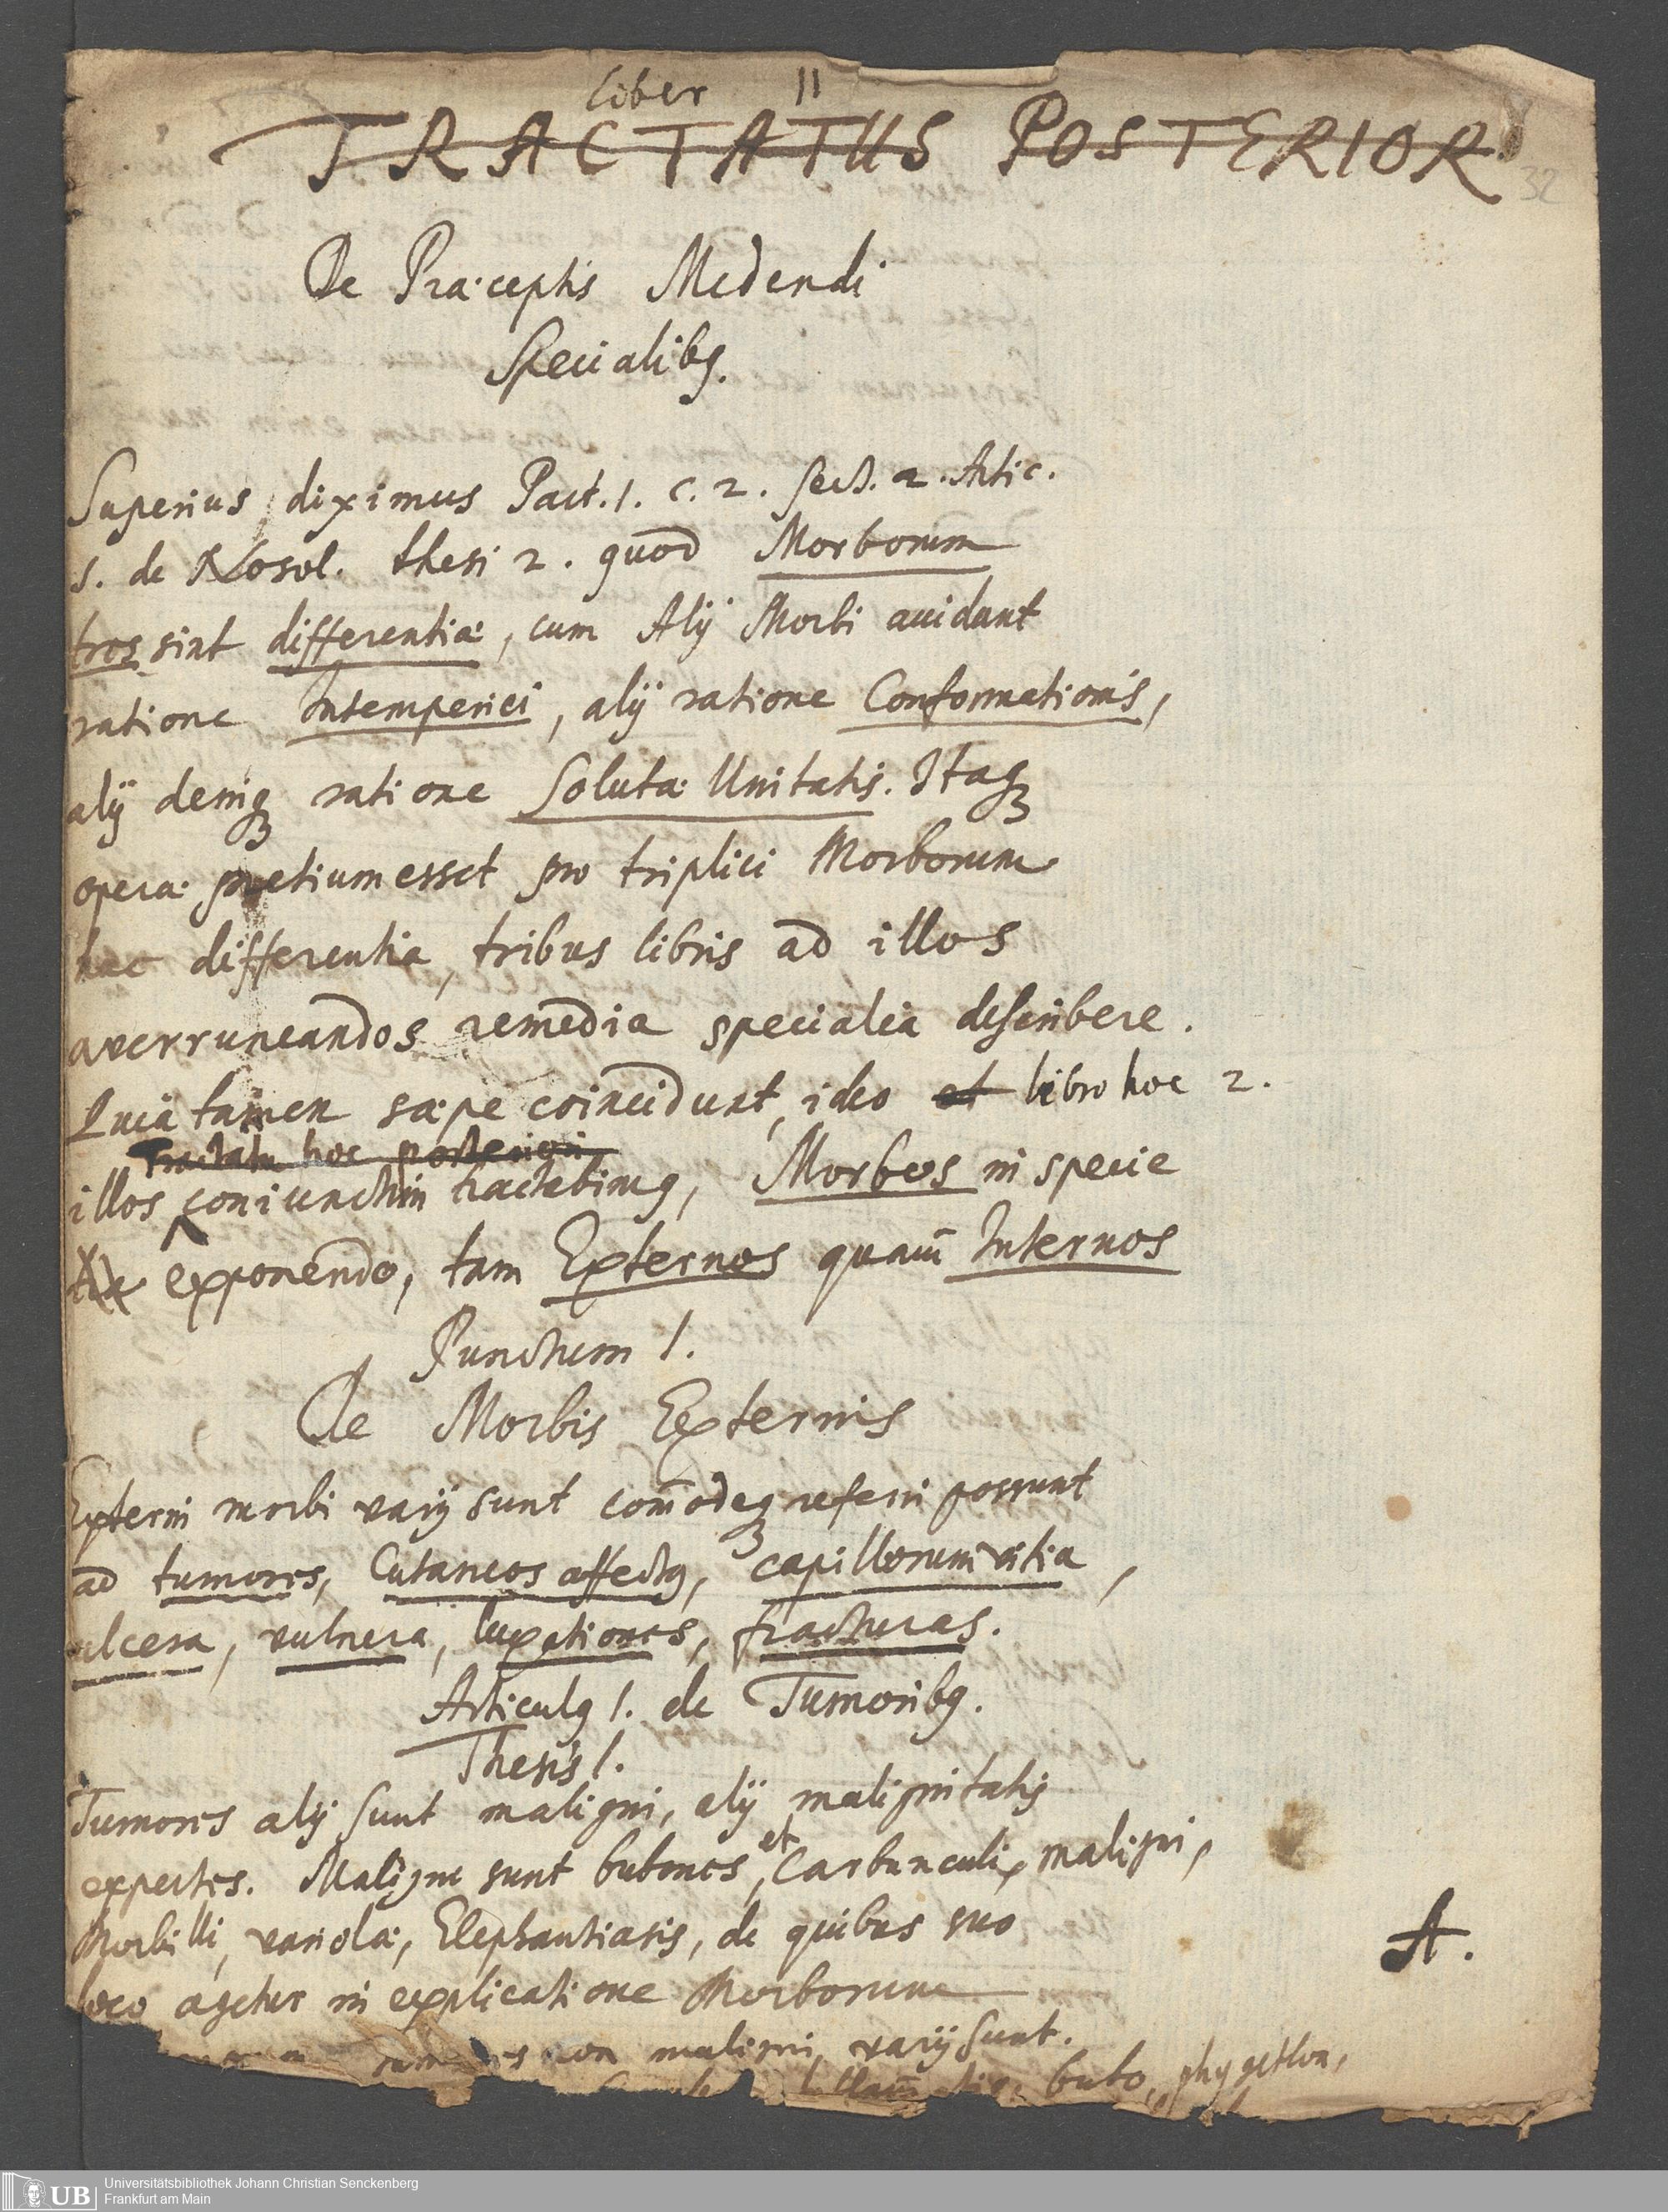 Liber II
TRACTATUS POSTERIOR.
32
De Præceptis Medendi
Specialibꝫ.
Superius diximus Part. 1. c. 2. Sect. 2. Artic.
s. de Nosol. thesi 2. quod Morborum
tres sint differentiæ, cum Alÿ Morbi accidant
ratione Intemperiei, alÿ ratione Conformationis,
alÿ deniqꝫ ratione Solutæ Unitatis. Itaqꝫ
operæ pretium esset pro triplici Morborum
hac differentia, tribus libris ad illos
averruncandos remedia specialia describere.
Quia tamen sæpe coincidunt, ideo et libro hoc 2.
Tractatu hoc posteriori
illos coniunctim tractabimꝰ, Morbos in specie
exponendo, tam Externos quam Internos
Punctum 1.
De Morbis Externis
Externi morbi varÿ sunt com̄odeqꝫ referri possunt
ad tumores, Cutaneos affectꝰ, capillorum vitia,
ulcera, vulnera, luxationes, fracturas.
Articulꝰ 1. de Tumoribꝰ.
Thesis 1.
Tumores alÿ sunt maligni, alÿ malignitatis
expertes. Maligni sunt bubones, et Carbunculi, maligni,
Morbilli, variolæ, Elephantiasis, de quibus suo
loco agetur in explicatione Morborum
A.
non maligni, varÿ sunt.
bubo, phygethlon,
UB Universitätsbibliothek Johann Christian Senckenberg
Frankfurt am Main